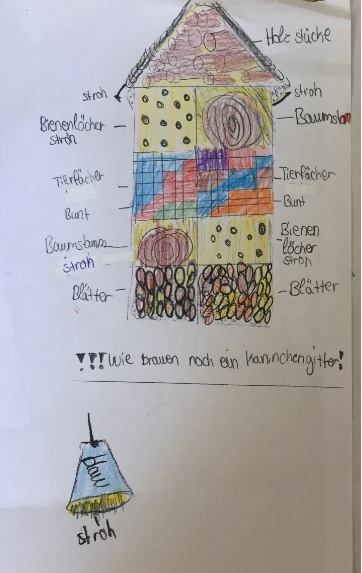 Holz stücke
stroh
stroh
Bienenlöcher
stroh
Baumstam
Tierfächer
Tierfächer
Bunt
Bunt
Baumstamm
stroh
Bienen
löcher
stroh
Blätter
Blätter
!!! Wie brauen noch ein Kaninchengitter!
Hau
stroh